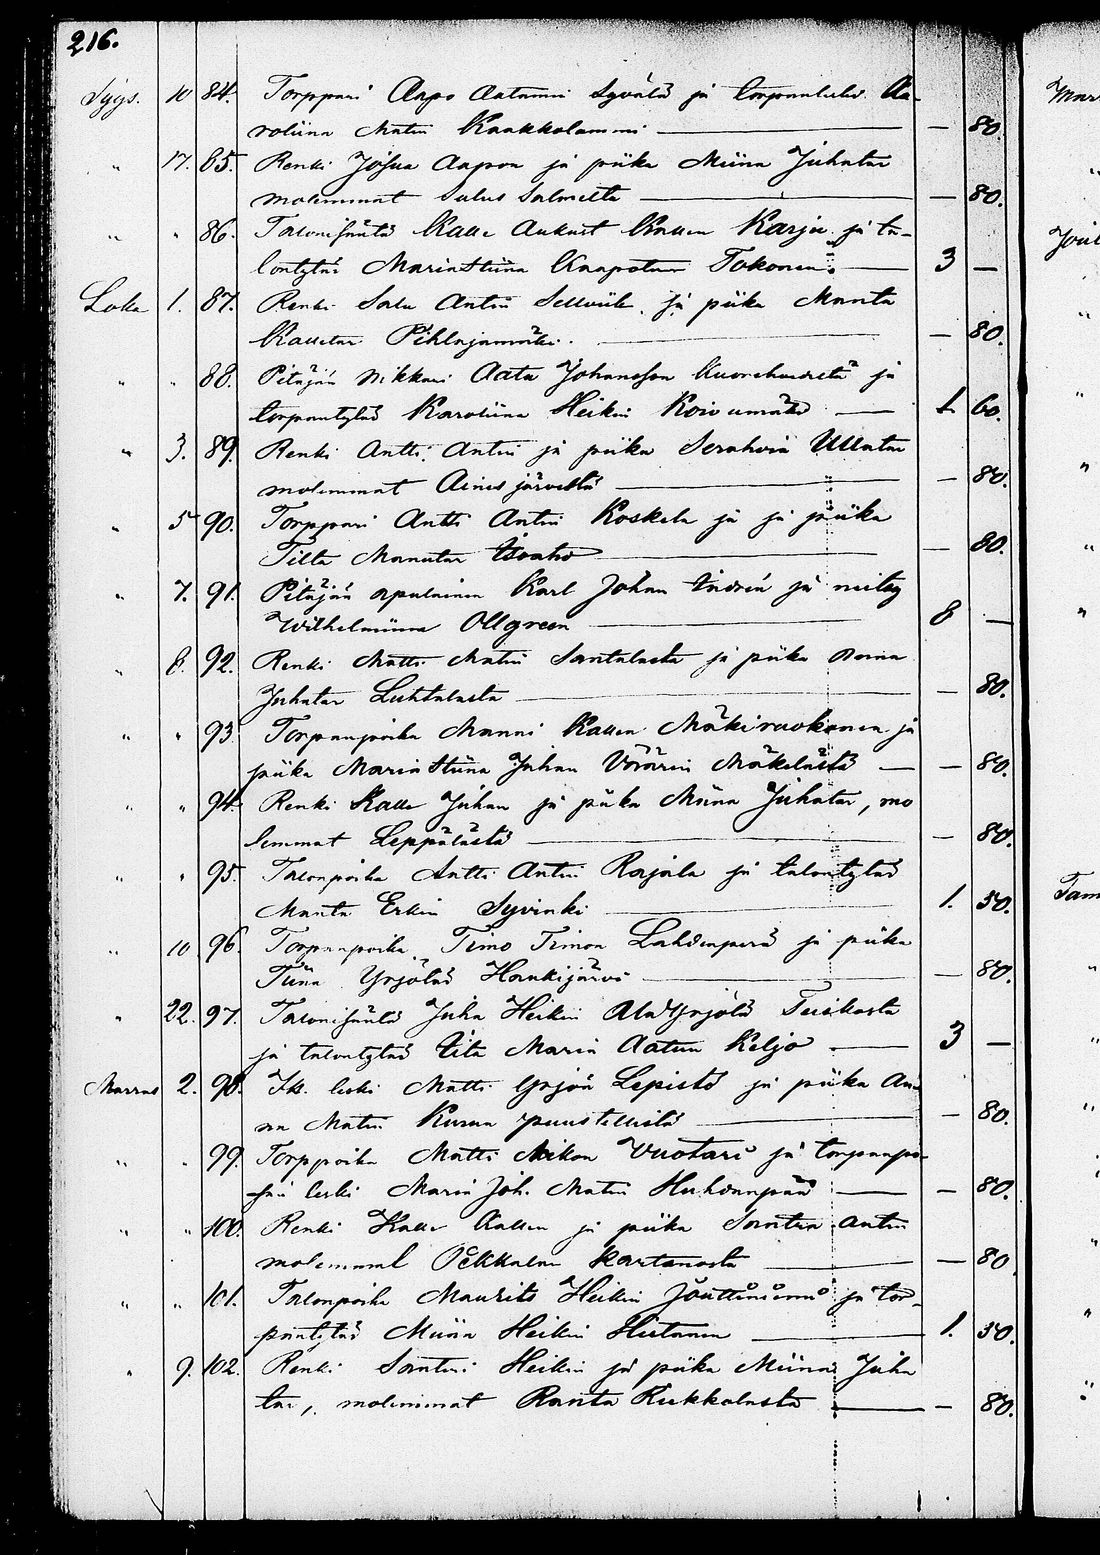 216.
Syys. 10 84. Torppari Aapo Aatami Syvälä ja torpantytär Ka-
roliina Matin Kaakkolammi — 80.
" 17. 85. Renki Josua Aapon ja piika Miina Juhatar
molemmat Salmelta — 80.
" " 86. Talonisäntä Kalle Aukust Kallen Karju ja ta-
lontytär Maria Stiina Kaapotar Tokonen. 3 —
Loka 1. 87. Renki Salu Antin ja piika Manta
Kalletar Pihlajamäki. — 80.
" " 88. Pitäjän nikkari Aatu Johansson ja
torpantytär Karoliina Heikin Koivumäki 1 60.
" 3. 89. Renki Antti Antin ja piika Serahvia Ullatar
molemmat Ainesjärveltä — 80.
" 5 90. Torppari Antti Antin Koskela ja ja piika
Tilta Manutar Isoaho — 80.
" 7. 91. Pitäjän apulainen Karl Johan Indrén ja neitsy
Wilhelmiina Ollgreen 8 —
" 8. 92. Renki Matti Matin Santalasta ja piika
Juhatar Luhtalasta — 80.
" " 93 Torpanpoika Manni Kallen Mäkiruokonen ja
piika Maria Stiina Juhan Väärin Mäkelästä — 80.
" " 94. Renki Kalle Juhan ja piika Miina Juhatar, mo
lemmat Leppälästä — 80.
" " 95. Talonpoika Antti Antin Rajala ja talontytär
Manta Erkin Syvinki 1. 50.
" 10 96. Torpanpoika Timo Timon Lahdenperä ja piika
Tiina Yrjötär Hankijärvi — 80.
" 22. 97. Talonisäntä Juha Heikin Ala Yrjölä Teiskosta
ja talontytär Iita Maria Aatun Keljo 3 —
Marras 2. 98. Itk. leski Matti Yrjön Lepistö ja piika An-
na Matin Kurun puustellista — 80.
" " 99. Torppoika Matti Mikon Vuotari ja torpanpo-
jan leski Maria Joh. Matin Huhdanpää — 80.
" " 100. Renki Kalle Kallen ja piika Santra Antin
molemmat Pekkalan kartanosta — 80.
" " 101. Talonpoika Maurits Heikin Jouttiniemi ja tor-
pantytär Miina Heikin Hietanen 1. 50.
" 9. 102. Renki Santeri Heikin ja piika Miina Juha
tar, molemmat Ranta Kiekkolasta — 80.
Marr
Joul
Tam